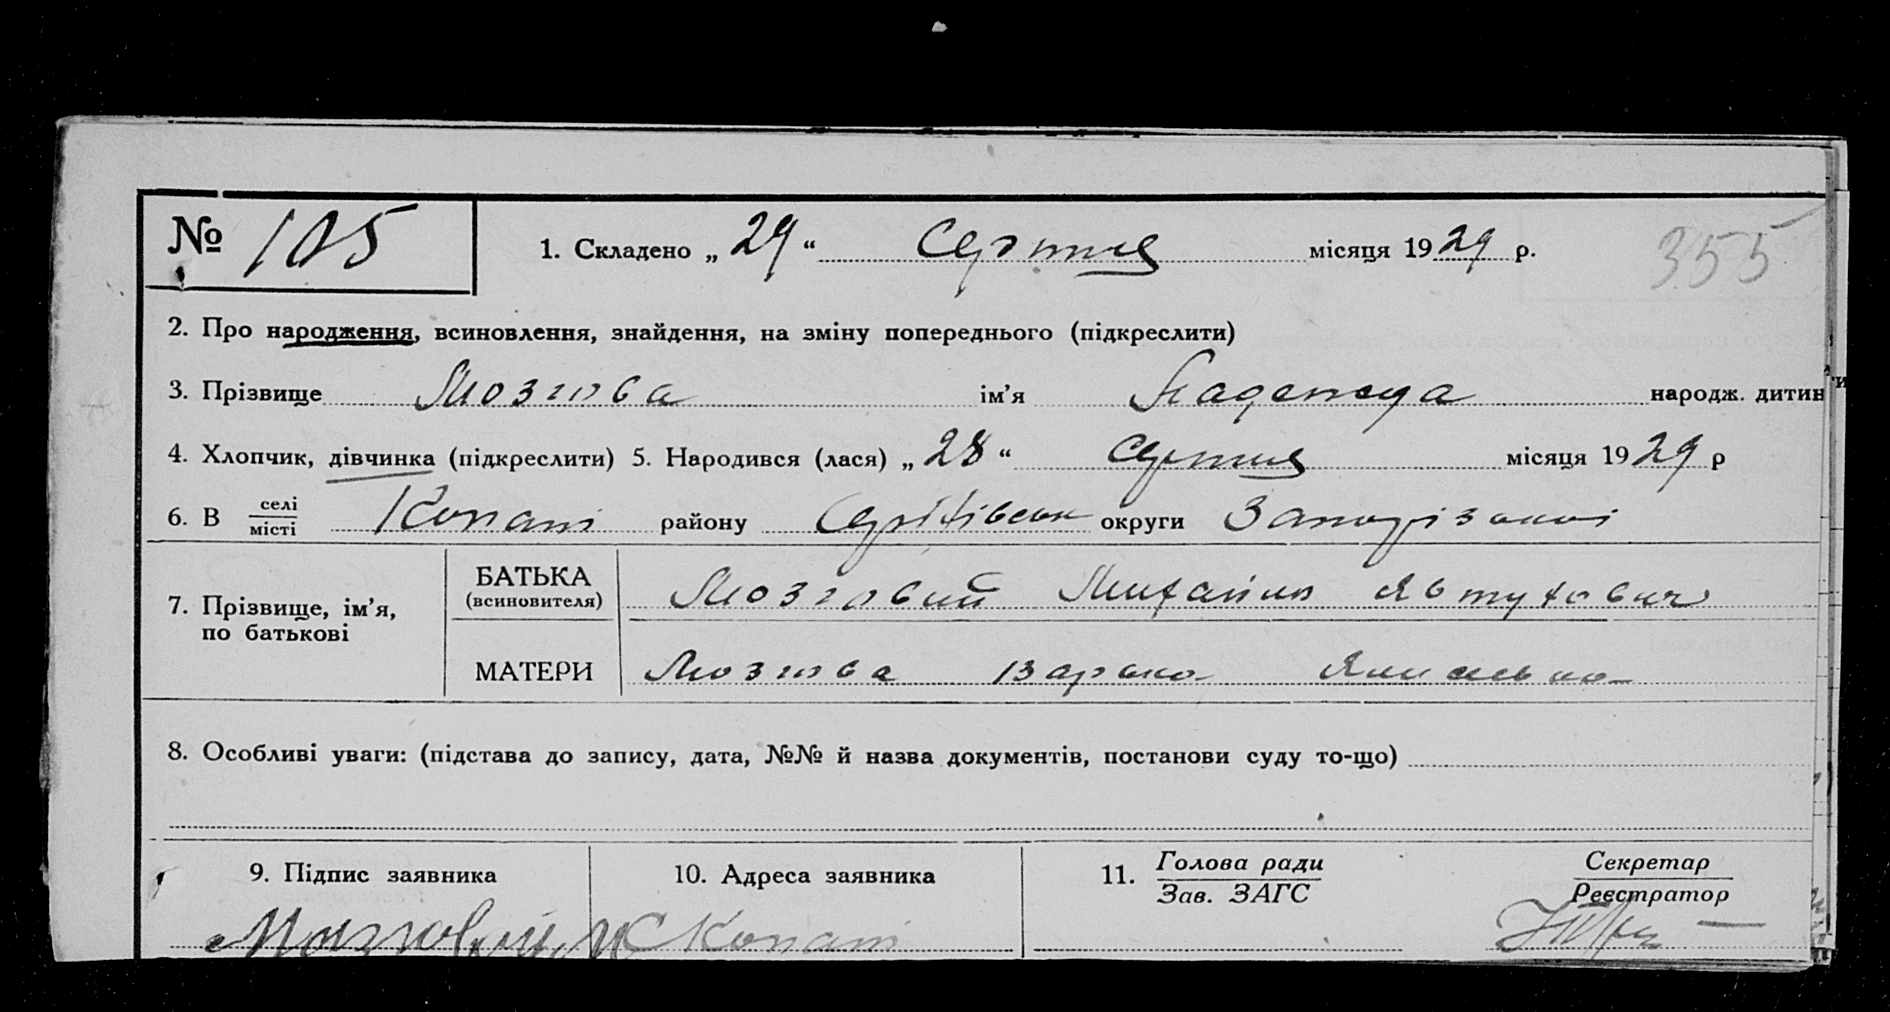 № 105 1. Складено „29“ серпня місяця 1929 р. 355
2. Про народження, всиновлення, знайдення, на зміну попереднього (підкреслити)
3. Прізвище Мозгова ім’я Надежда народж. дитин
4. Хлопчик, дівчинка (підкреслити) 5. Народився (лася) „28“ серпня місяця 1929 р
6. В селі
місті Копані району округи Запорізької
7. Прізвище, ім’я,
по батькові
БАТЬКА
(всиновителя) Мозговий Михайло Явтухович
МАТЕРИ Мозгова Варька
8. Особливі уваги: (підстава до запису, дата, №№ й назва документів, постанови суду то-що)
9. Підпис заявника 10. Адреса заявника 11. Голова ради Секретар
Зав. ЗАГС Реєстратор
Мозговой М С Копани